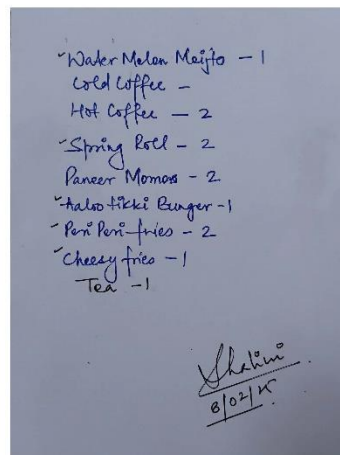 Water Melon Mojito - 1
Cold Coffee -
Hot Coffee - 2
Spring Roll - 2
Paneer Momos - 2
Aaloo tikki Burger - 1
Peri Peri fries - 2
Cheesy fries - 1
Tea - 1
Shalini
8/02/25